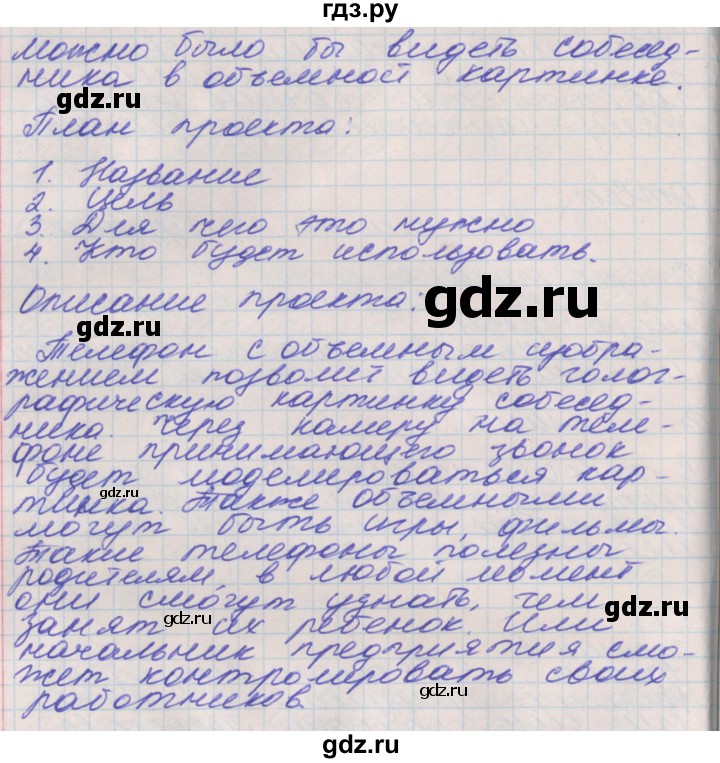 гдз.ру
можно было бы видеть собесед-
ника в объемной картинке.
gdz.ru
План проекта:
1. Название
2. Цель
3. Для чего это нужно
4. Кто будет использовать.
Описание проекта:
gdz.ru
gdz.ru
Телефон с объемным изобра-
жением позволит видеть голог-
рафическую картинку собесед-
ника. Через камеру на теле-
фоне принимающего звонок
будет моделироваться кар-
тинка. Также объемными
могут быть игры, фильмы.
Такие телефоны полезны
родителям, в любой момент
они смогут узнать, чем
gdz.ru
занят их ребенок. Или
начальник предприятия смо-
жет контролировать своих
работников.
gdz.ru